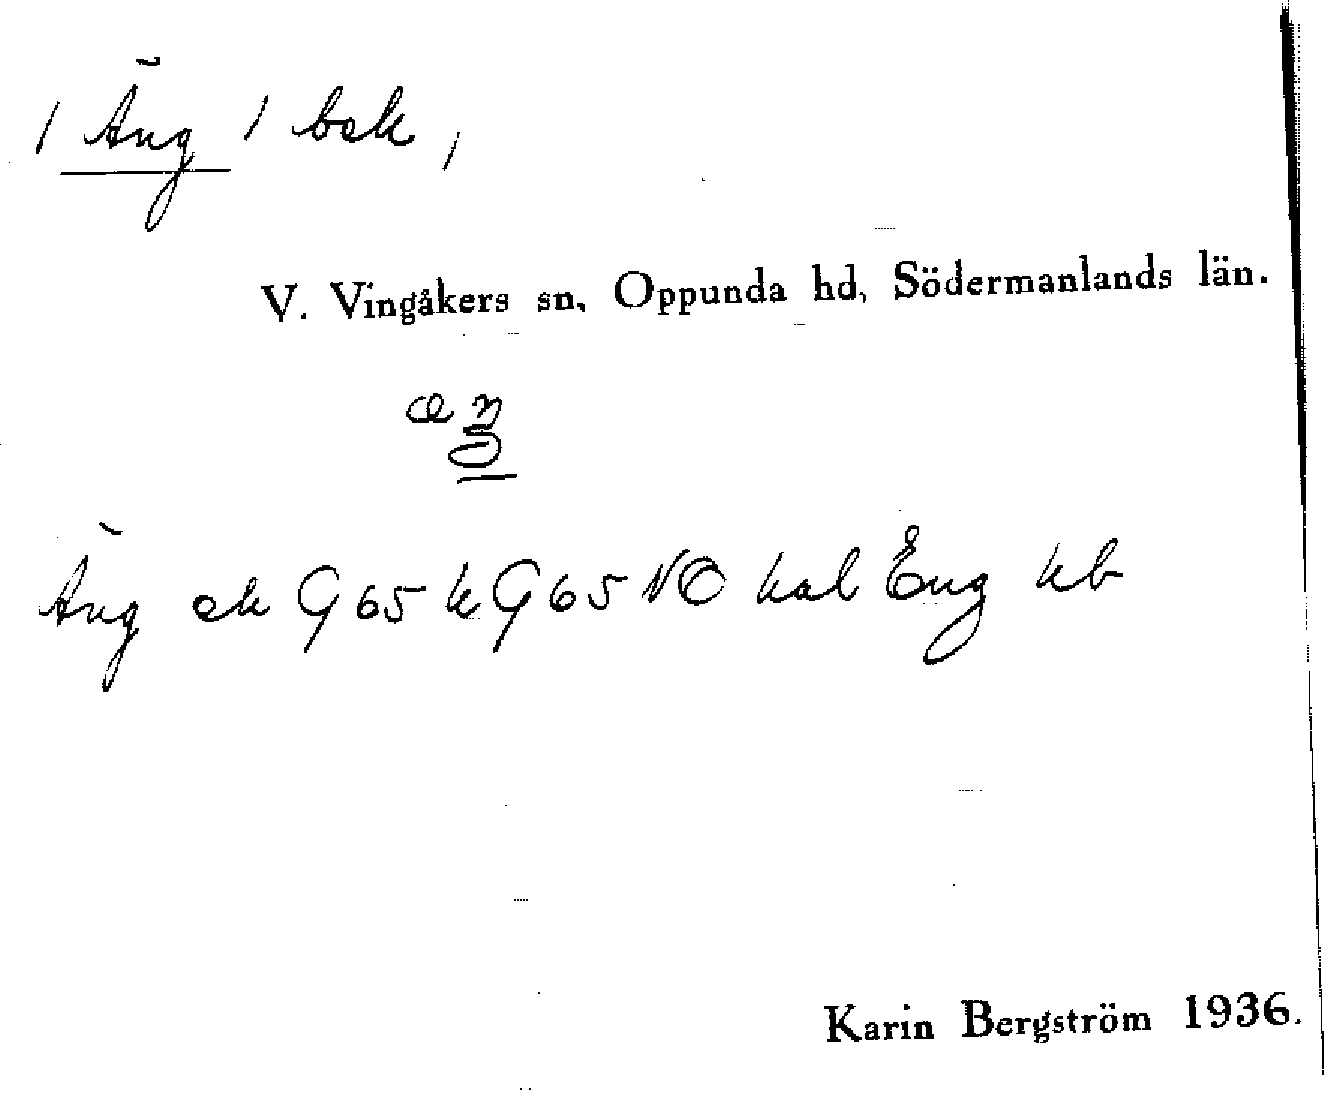 / Äng / bek /
V. Vingåkers sn, Oppunda hd, Södermanlands län.
Äng ek G 65 k G 65 NO kal Eng kb
Karin Bergström 1936.